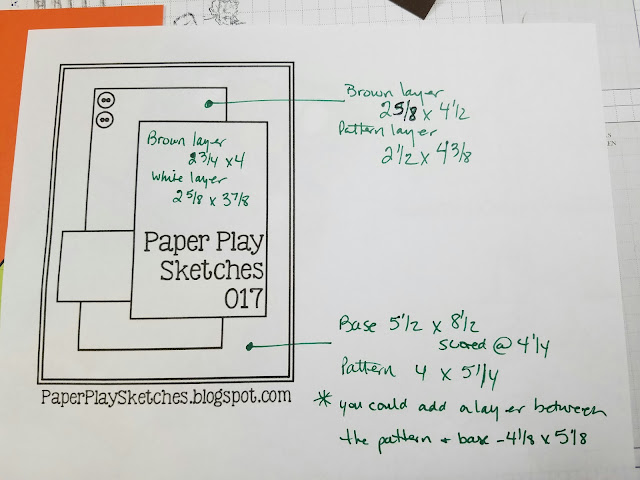 Brown layer
2 5/8 x 4 1/2
Pattern layer
2 1/2 x 4 3/8
Brown layer
2 3/4 x 4
White layer
2 5/8 x 3 7/8
Paper Play
Sketches
017
Base 5 1/2 x 8 1/2
scored @ 4 1/4
Pattern 4 x 5 1/4
* you could add a layer between
the pattern + base - 4 1/8 x 5 3/8
PaperPlaySketches.blogspot.com